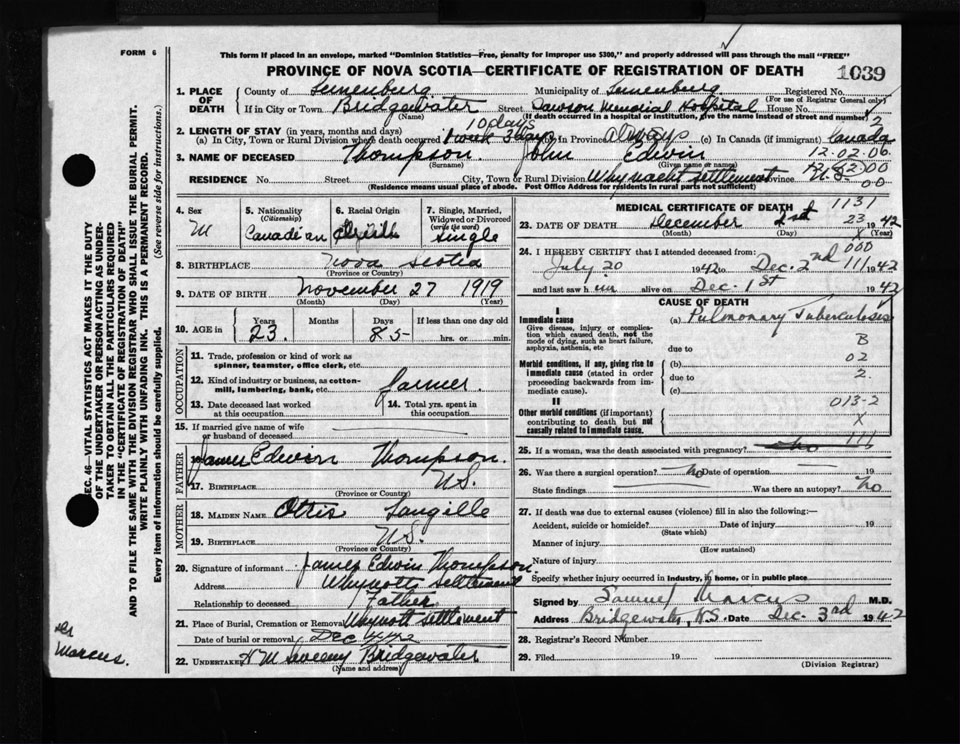 FORM 6
This form if placed in an envelope, marked "Dominion Statistics—Free, penalty for improper use $300," and properly addressed will pass through the mail "FREE"
PROVINCE OF NOVA SCOTIA—CERTIFICATE OF REGISTRATION OF DEATH
1039
1. PLACE OF DEATH County of Lunenburg Municipality of Lunenburg Registered No.
(For use of Registrar General only)
If in City or Town Bridgewater Street Dawson Memorial Hospital House No.
(Name) (If death occurred in a hospital or institution, give the name instead of street and number) 2
2. LENGTH OF STAY (in years, months and days) 10 days
(a) In City, Town or Rural Division where death occurred 1 week 3 days In Province Always (c) In Canada (if immigrant) Canada
3. NAME OF DECEASED Thompson. John Edwin 12.02.00
(Surname) (Given name or names)
RESIDENCE No. Street City, Town or Rural Division Whynacht Settlement Province N.S. 00
(Residence means usual place of abode. Post Office Address for residents in rural parts not sufficient)
4. Sex M
5. Nationality (Citizenship) Canadian
6. Racial Origin
7. Single, Married, Widowed or Divorced (write the word) Single
8. BIRTHPLACE Nova Scotia
(Province or Country)
9. DATE OF BIRTH November 27 1919
(Month) (Day) (Year)
10. AGE in Years 23. Months Days 85 If less than one day old
hrs. or min.
OCCUPATION
11. Trade, profession or kind of work as spinner, teamster, office clerk, etc.
12. Kind of industry or business, as cotton-mill, lumbering, bank, etc. farmer.
13. Date deceased last worked at this occupation
14. Total yrs. spent in this occupation
15. If married give name of wife or husband of deceased
FATHER
16. James Edwin Thompson.
17. BIRTHPLACE N.S.
(Province or Country)
MOTHER
18. MAIDEN NAME Ottis Langille
19. BIRTHPLACE N.S.
(Province or Country)
20. Signature of informant James Edwin Thompson.
Address Whynotts Settlement
Relationship to deceased Father
21. Place of Burial, Cremation or Removal Whynott Settlement
Date of burial or removal Dec
22. UNDERTAKER H M Sweeny Bridgewater
(Name and address)
MEDICAL CERTIFICATE OF DEATH 1131
23. DATE OF DEATH December 2nd 23 1942
(Month) (Day) (Year)
X
24. I HEREBY CERTIFY that I attended deceased from: 000
July 20 1942 to Dec. 2nd 111 1942
and last saw him alive on Dec. 1st 1942
CAUSE OF DEATH
I
Immediate cause
Give disease, injury or complication which caused death, not the mode of dying, such as heart failure, asphyxia, asthenia, etc
(a) Pulmonary Tuberculosis
due to B
Morbid conditions, if any, giving rise to immediate cause (stated in order proceeding backwards from immediate cause).
(b) 02
due to 2.
(c)
II
013-2
Other morbid conditions (important) contributing to death but not causally related to immediate cause.
X
111
25. If a woman, was the death associated with pregnancy? no
26. Was there a surgical operation? no Date of operation 19
State findings Was there an autopsy? no
27. If death was due to external causes (violence) fill in also the following:—
Accident, suicide or homicide? Date of injury 19
(State which)
Manner of injury
(How sustained)
Nature of injury
Specify whether injury occurred in industry, in home, or in public place
Signed by Samuel Marcus M.D.
Address Bridgewater, N.S. Date Dec. 3rd 1942
28. Registrar's Record Number
29. Filed 19
(Division Registrar)
SEC. 46—VITAL STATISTICS ACT MAKES IT THE DUTY
OF THE UNDERTAKER OR PERSON ACTING AS UNDER-
TAKER TO OBTAIN ALL THE PARTICULARS REQUIRED
IN THE "CERTIFICATE OF REGISTRATION OF DEATH"
AND TO FILE THE SAME WITH THE DIVISION REGISTRAR WHO SHALL ISSUE THE BURIAL PERMIT.
WRITE PLAINLY WITH UNFADING INK. THIS IS A PERMANENT RECORD.
Every item of information should be carefully supplied. (See reverse side for instructions.)
Dr
Marcus.